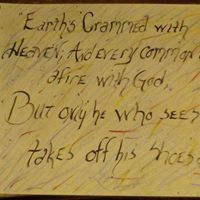 "Earth's Crammed with
Heaven; And every common
afire with God,
But only he who sees
takes off his shoes